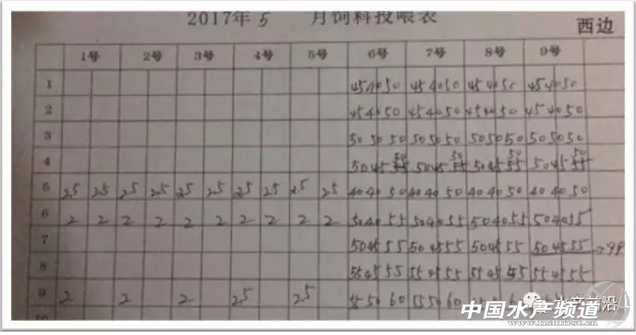 2017年 5 月饲料投喂表
西边
1号 2号 3号 4号 5号 6号 7号 8号 9号
1 45 40 50 45 40 50 45 40 50 45 40 50
2 45 40 50 45 40 50 45 40 50 45 40 50
3 50 50 50 50 50 50 50 50 50 50 50 50
4 50 45 50 45 50 45 50 45
5 25 25 25 25 25 25 25 25 25 25 40 40 50 40 40 50 40 40 50 40 40 50
6 2 2 2 2 2 2 2 2 2 2 50 40 55 50 40 55 50 40 55 50 40 55
7 50 45 55 50 45 55 50 45 55 50 45 55
8 55 45 55 55 45 55 55 45 55 55 45 55
9 2 2 2 25 25 55 50 60 55 50 60
中国水产频道